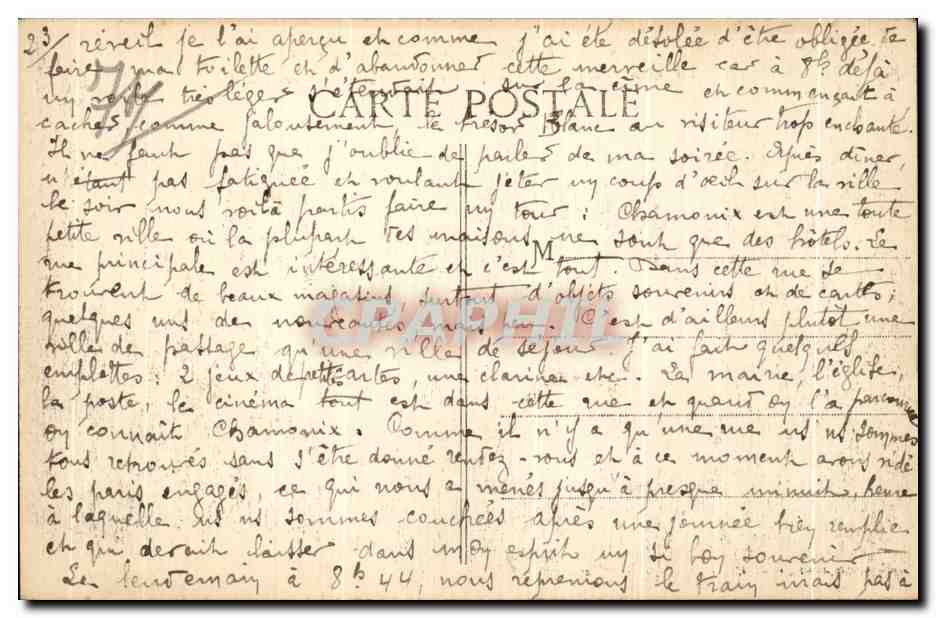 23/ réveil je l'ai aperçu et comme j'ai été désolée d'être obligée de
faire ma toilette et d'abandonner cette merveille car à 8h déjà
un voile très léger s'étendait sur la cîme et commençait à
CARTE POSTALE
cacher, comme jalousement, le trésor blanc au visiteur trop enchanté.
Il ne faut pas que j'oublie de parler de ma soirée. Après dîner,
n'étant pas fatiguée et voulant jeter un coup d'œil sur la ville
le soir nous voilà partis faire un tour : Chamonix est une toute
petite ville où la plupart des maisons ne sont que des hôtels. La
M
rue principale est intéressante et c'est tout. Dans cette rue se
trouvent de beaux magasins surtout d'objets souvenirs et de cartes ;
quelques uns de nouveautés mais peu. C'est d'ailleurs plutôt une
CPAPHIL
ville de passage qu'une ville de séjour. J'ai fait quelques
emplettes : 2 jeux de petites cartes, une clarine etc. La mairie, l'église,
la poste, le cinéma tout est dans cette rue et quand on l'a parcourue
on connaît Chamonix. Comme il n'y a qu'une rue ns ns sommes
tous retrouvés sans s'être donné rendez-vous et à ce moment avons vidé
les paris engagés, ce qui nous a menés jusqu'à presque minuit, heure
à laquelle ns ns sommes couchées après une journée bien remplie
et qui devait laisser dans mon esprit un si bon souvenir
Le lendemain à 8h 44, nous reprenions le train mais pas à